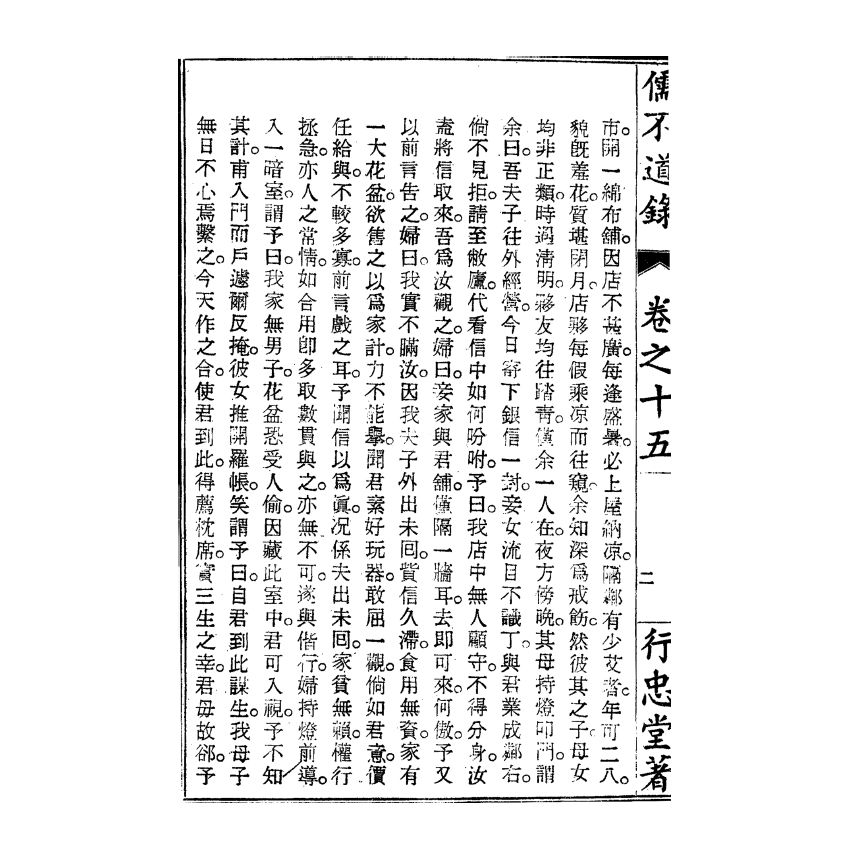 儒不道錄 卷之十五 二 行忠堂著
市。開一綿布舖。因店不甚廣。每逢盛暑。必上屋納凉。隔鄰有少艾者。年可二八。
貌旣羞花。質甚閉月。店夥每假乘凉而往窺。余知深爲戒飭。然彼其之子。母女
均非正類。時過淸明。夥友均往踏靑。僅余一人在。夜方傍晚。其母持燈叩門。謂
余曰。吾夫子往外經營。今日寄下銀信一封。妾女流目不識丁。與君業成鄰右。
倘不見拒。請至敝廬。代看信中如何吩咐。予曰。我店中無人顧守。不得分身。汝
盍將信取來。吾爲汝觀之。婦曰。妾家與君舖。僅隔一牆耳。去卽可來。何傲。予又
以前言告之。婦曰。我實不瞞汝。因我夫子外出未回。貲信久滯。食用無資。家有
一大花盆。欲售之以爲家計。力不能舉。聞君素好玩器。敢屈一觀。倘如君意。價
任給與。不較多寡。前言戲之耳。予聞信以爲眞。况係夫出未回。家貧無賴。權行
拯急。亦人之常情。如合用卽多取數貫與之。亦無不可。遂與偕行。婦持燈前導。
入一暗室。謂予曰。我家無男子。花盆恐受人偷。因藏此室中。君可入視。予不知
其計。甫入門而戶遽爾反掩。彼女推開羅帳。笑謂予曰。自君到此謀生。我母子
無日不心焉繫之。今天作之合。使君到此。得薦枕席。實三生之幸。君毋故郤。予